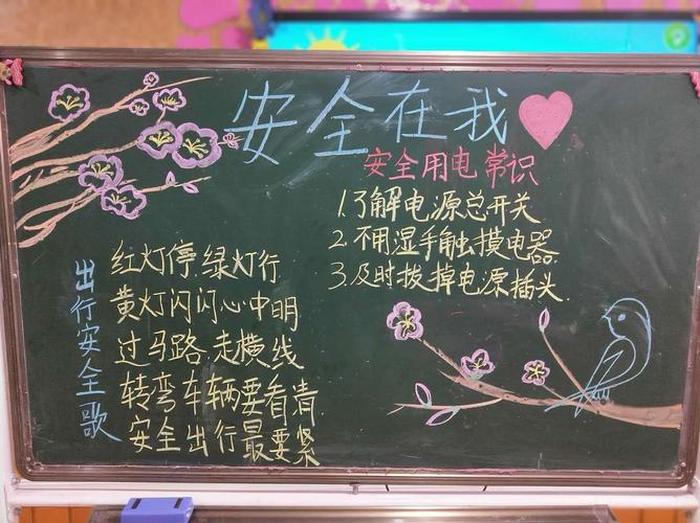 安全在我
安全用电常识
1.了解电源总开关
2.不用湿手触摸电器
3.及时拔掉电源插头.
出行安全歌
红灯停绿灯行
黄灯闪闪心中明
过马路走横线
转弯车辆要看清
安全出行最要紧